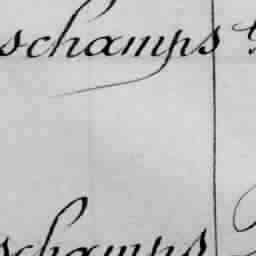 schamps
schamps